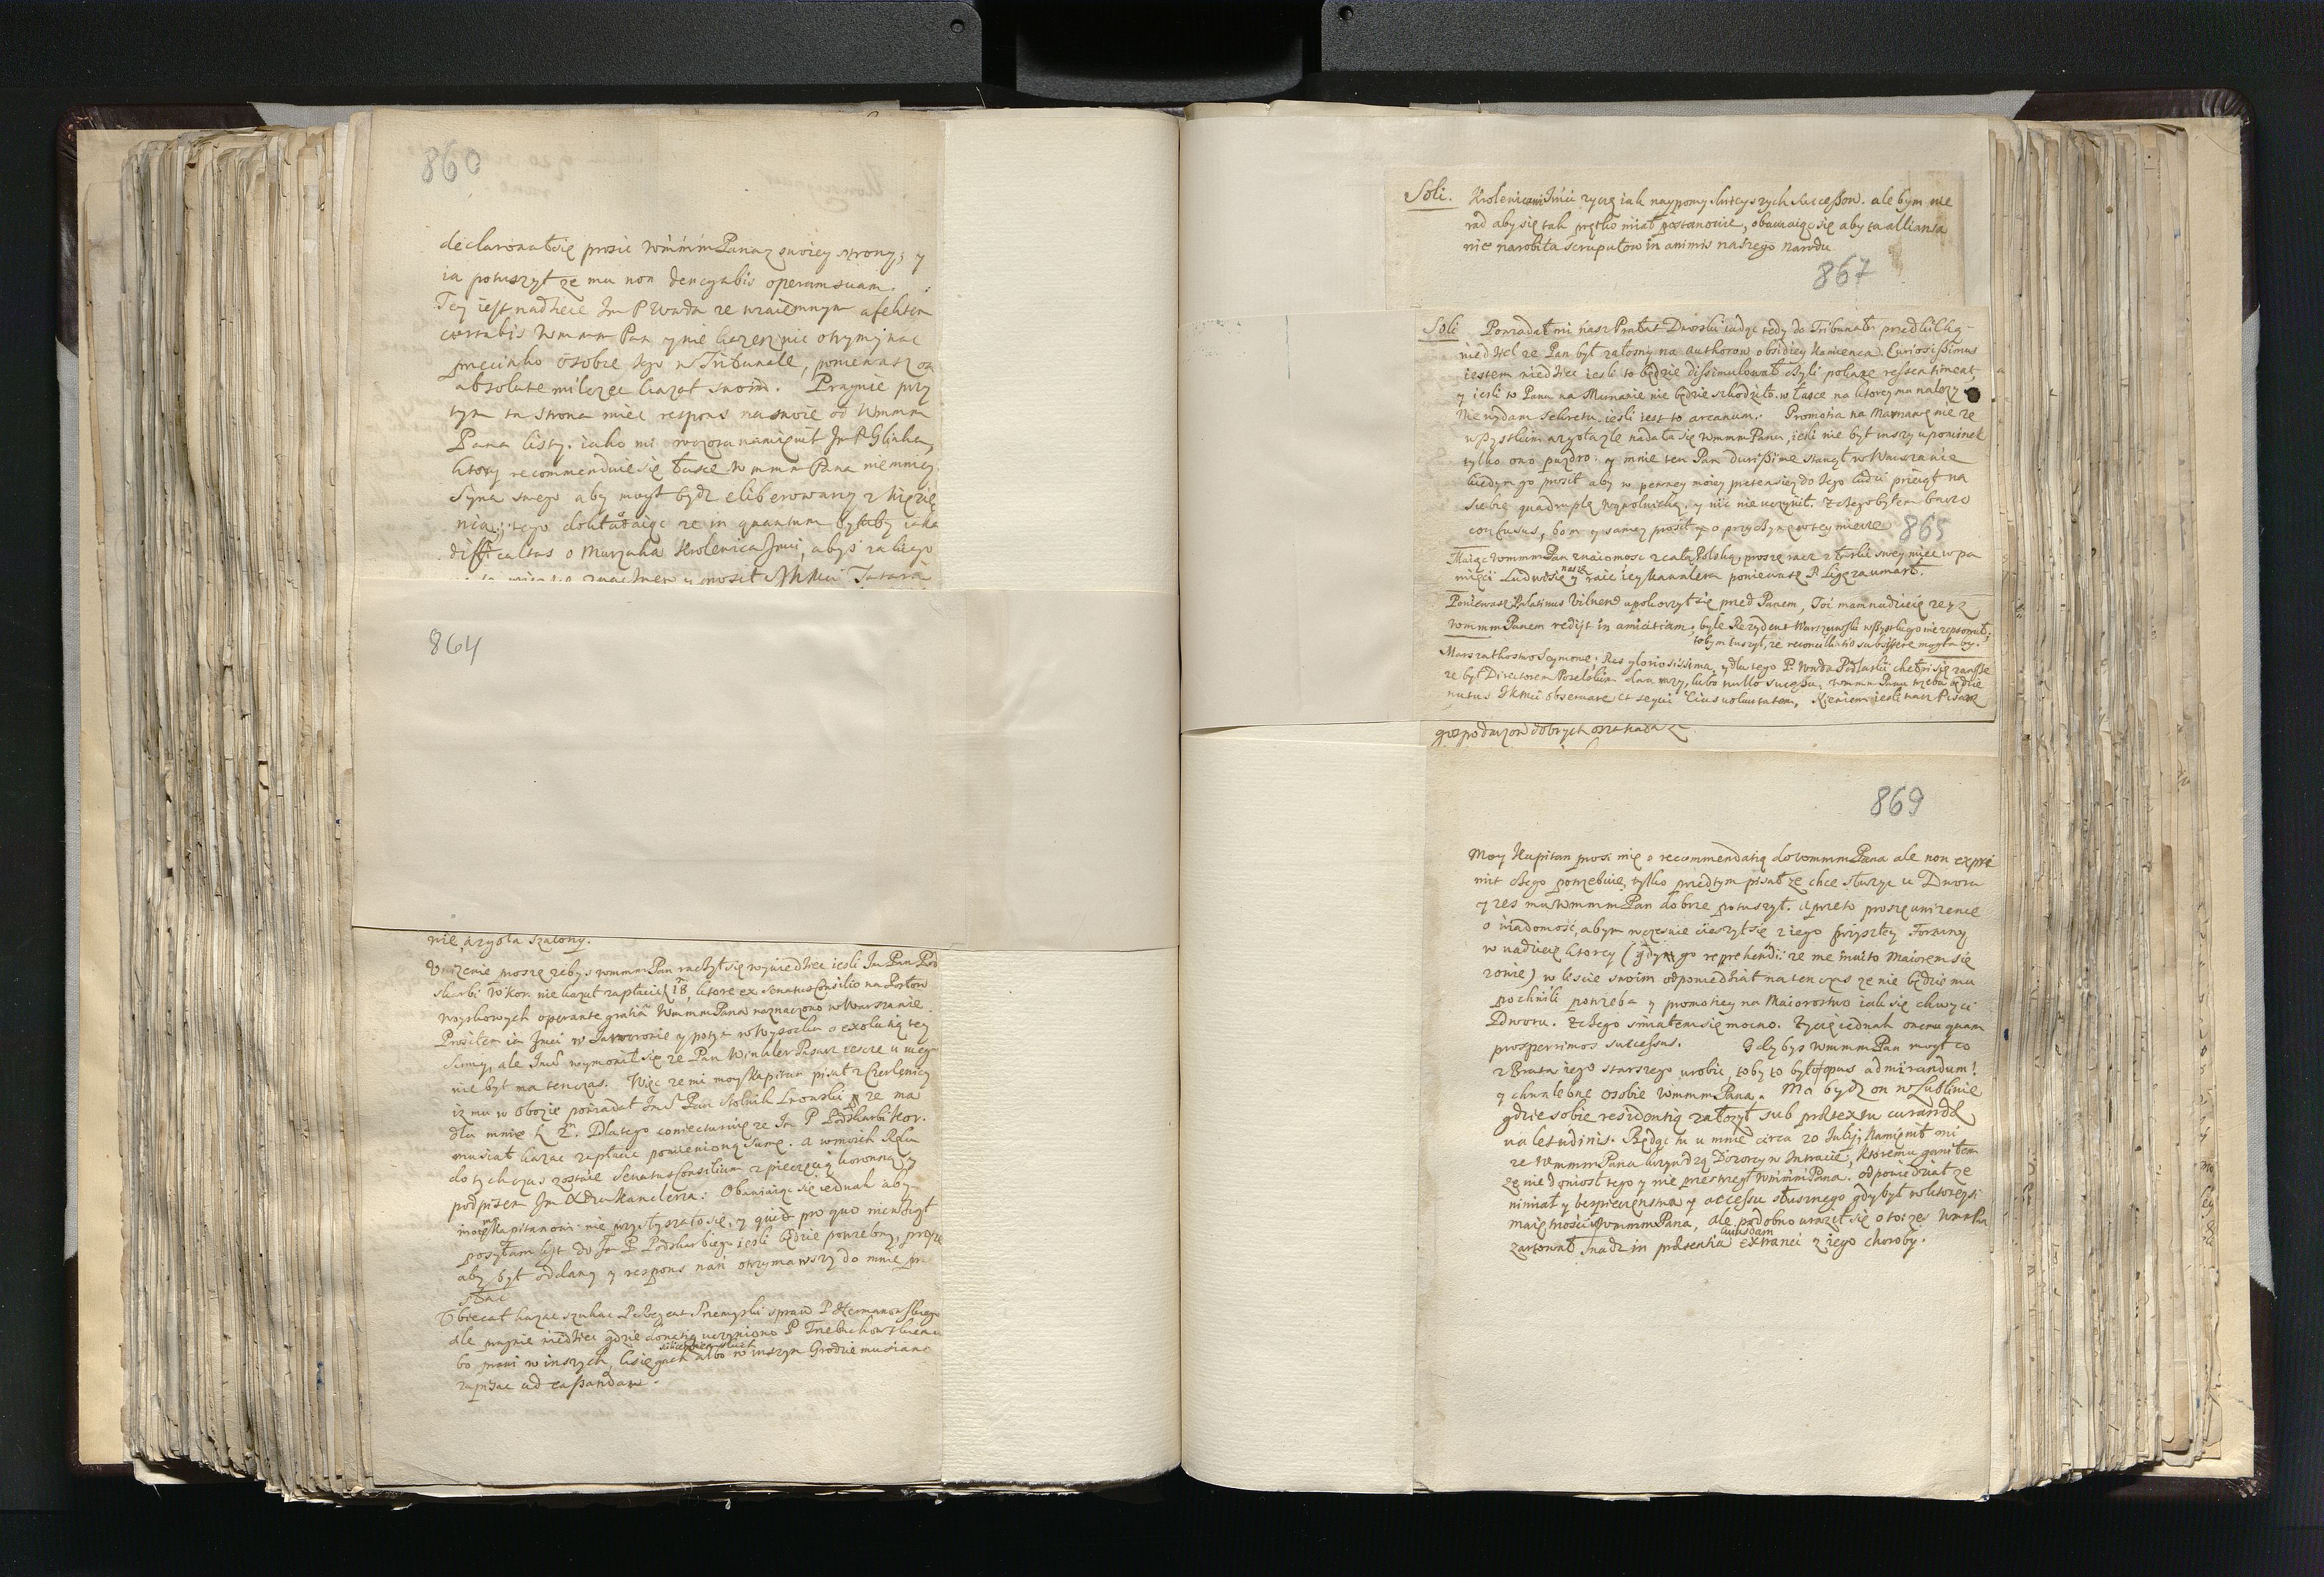 860
declarował się prosić WmmmPana z swoiey strony, y
ia potuszył że mu non denegabis operam suam.
Tey iest nadzieie Im P Wnda że wzaiemnym afektem
Wmmm Pan y nie każesz nic otrzymywać
przeciwko osobie iego w Tribunale, ponieważ on
absolute milczeć kazał swoim. Pragnie przy
tym ta strona mieć respons na swoie od Wmmm
Pana listy. iako mi wczora namienił Im P Glinka,
ktory recommenduie się łasce Wmmm Pana niemniey
Syna swego aby mogł bydz eliberowany z więzie
nia, tego dokładaiąc że in quantum byłaby iaka
difficultas o Murzaka Krolewica Jmci, abyś za kiego
864
nie, a zgoła szalony.
Unizenie proszę żebyś wmmm Pan raczył się wywiedzieć iesli Im Pan Pod
skarbi Wkor. nie kazał zapłacić, ktore ex Senatus Consilio na Posłow
woyskowych operante gratia WmmmPana naznaczono w Warszawie.
Prosiłem ia Jmci w Jaworowie y potym w Wysocku o exolutią tey
Summy, ale Jmć wymowił się że Pan Winkler Pisarz ieszcze u niego
nie był na tenczas. Więc że mi moy Kapitan pisał z Czerlenicy
iz mu w obozie powiadał Jmć Pan Stolnik Lwowski że ma
dla mnie. Dlatego coniecturuię że Im P Podskarbi Kor.
musiał kazać zapłacić pomienioną Sumę. a w moich Ręku
dotychczas zostaie Senatus Consilium z pieczęcią koronną y
podpisem Im Xdza Kanclerza. Obawiaiąc się iednak aby
moiemu Kapitanowi nie przysłyszało się, y quid pro quo nie wziął
posyłam list do Im P Podskarbiego iesli będzie potrzebny, proszę
aby był oddany y respons nań otrzymawszy do mnie prze
słać
Obiecał kazać szukać P Regent Przemyski spraw P Hermanowskiego
ale pragnie wiedzieć gdzie donatią uczyniono P Trebuchowskiemu
bo prawi w inszych księgach albo w inszym Grodzie musiano
zapisać ad cassandam.
Soli. Krolewicowi Jmci życzę iak naypomyślnieyszych successow. ale bym nie
rad aby się tak prętko miał postanowić, obawiaiąc się aby ta allianca
nie narobiła scrupułow in animis naszego narodu
867
Soli Powiadał mi nasz Prałat Dworski iadąc tedy do Tribunału przed kilką
niedziel że Pan był żałosny na authorow obsidiey Kamieńca. Curiosissimus
iestem wiedzieć iesli to będzie dissimulował czyli pokaże ressentiment
y iesli to Panu na Marnanie nie będzie szkodziło w łasce na ktorey mu należy
Nie wydam sekretu iesli iest to arcanum. Promotia na Marnanę nie ze
wszystkim zgoła źle nadała się wmmm Panu, iesli nie był inszy upominek
tylko ono puzdro: y mnie ten Pan durissime stanął w Warszawie
kiedym go prosił aby w pewney moiey pretensiey do Iego ludzi przyiął na
siebie quadruplę, y nic nie uczynił. z czego byłem bardzo
confusus, bom y samey prosił o przyczynę w tey mierze 865
Maiąc WmmmPan znaiomość z całą Polską, proszę racz z łaski swey mieć w pa
mięci Ludwisię naszę y raić iey kawalera ponieważ P Ligęza umarł.
Ponieważ Palatinus Vilnen upokorzył się przed Panem, Toż mam nadzieię że y z
WmmmPanem redijt in amicitiam, byle Rezydent Warszawski wszystkiego nie zepsował,
tobym tuszył, że reconciliatio subsistere mogłaby.
Marszałkostwo Seymowe, Res gloriosissima, y dla tego P. Wnda Podlaski chełpi się zawsze
że był Directorem Poselskim dwa razy, lubo nullo successu, wmmm Panu trzeba będzie
nutus JKMci observare et sequi Eius voluntatem,
gospodarzow dobrych
869
Moy Kapitan prosi mię o recommendatią do wmmm Pana ale non expri
mit czego potrzebuie, tylko przedtym pisał że chce służyć u Dworu
y żes mu wmmm Pan dobrze potuszył. A przeto proszę unizenie
o wiadomość, abym wczesnie cieszył się z iego przyszłey Fortuny
w nadzieię ktorey (gdym go reprehendi: że me invito Maiorem się
zowie) w lescie swoim odpowiedział na ten czas że nie będzie mu
po chwili potrzeba y promotiey na Maiorostwo iak się chwyci
Dworu. z czego smiałem się mocno. Życzę iednak onemu quam
prosperrimos successus. Gdy byś wmmm Pan mogł co
z Brata iego starszego urobić, toby to było opus admirandum!
y chwalebne osobie WmmmPana. Ma bydz on w Lublinie
gdzie sobie residentią założył sub prætextu curandæ
valetudinis. Będąc tu u mnie circa 20 Julij, namienił mi
że WmmmPana krzywdzą Dozorcy w Intracie, ktoremu ganiłem
że nie doniosł tego y nie przestrzegł WmmmPana. odpowiedział że
nimiał y bezpieczenstwa y accessu słusznego gdy był w ktoreysi
maiętności WmmmPana, ale podobno uraził się o to żeś
żartował snadz in præsentia cuiusdam extranei z iego choroby.